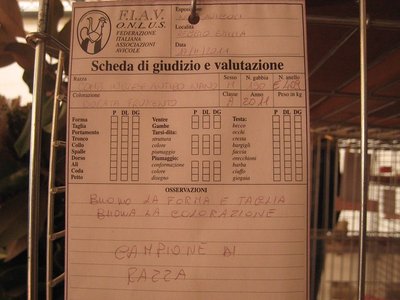 F.I.A.V.
O.N.L.U.S.
FEDERAZIONE
ITALIANA
ASSOCIAZIONI
AVICOLE
Esposizione
Località
REGGIO EMILIA
Data
Scheda di giudizio e valutazione
Razza Sesso N. gabbia N. anello
Colorazione Classe Anno Peso in kg
A 2011
P DL DG P DL DG P DL DG
Forma Ventre Testa:
Taglia Gambe becco
Portamento Tarsi-dita: occhi
Tronco struttura cresta
Collo colore bargigli
Spalle piumaggio faccia
Dorso Piumaggio: orecchioni
Ali conformazione barba
Coda colore ciuffo
Petto disegno giogaia
OSSERVAZIONI
BUONO LA FORMA E TAGLIA
BUONA LA COLORAZIONE
CAMPIONE DI
RAZZA